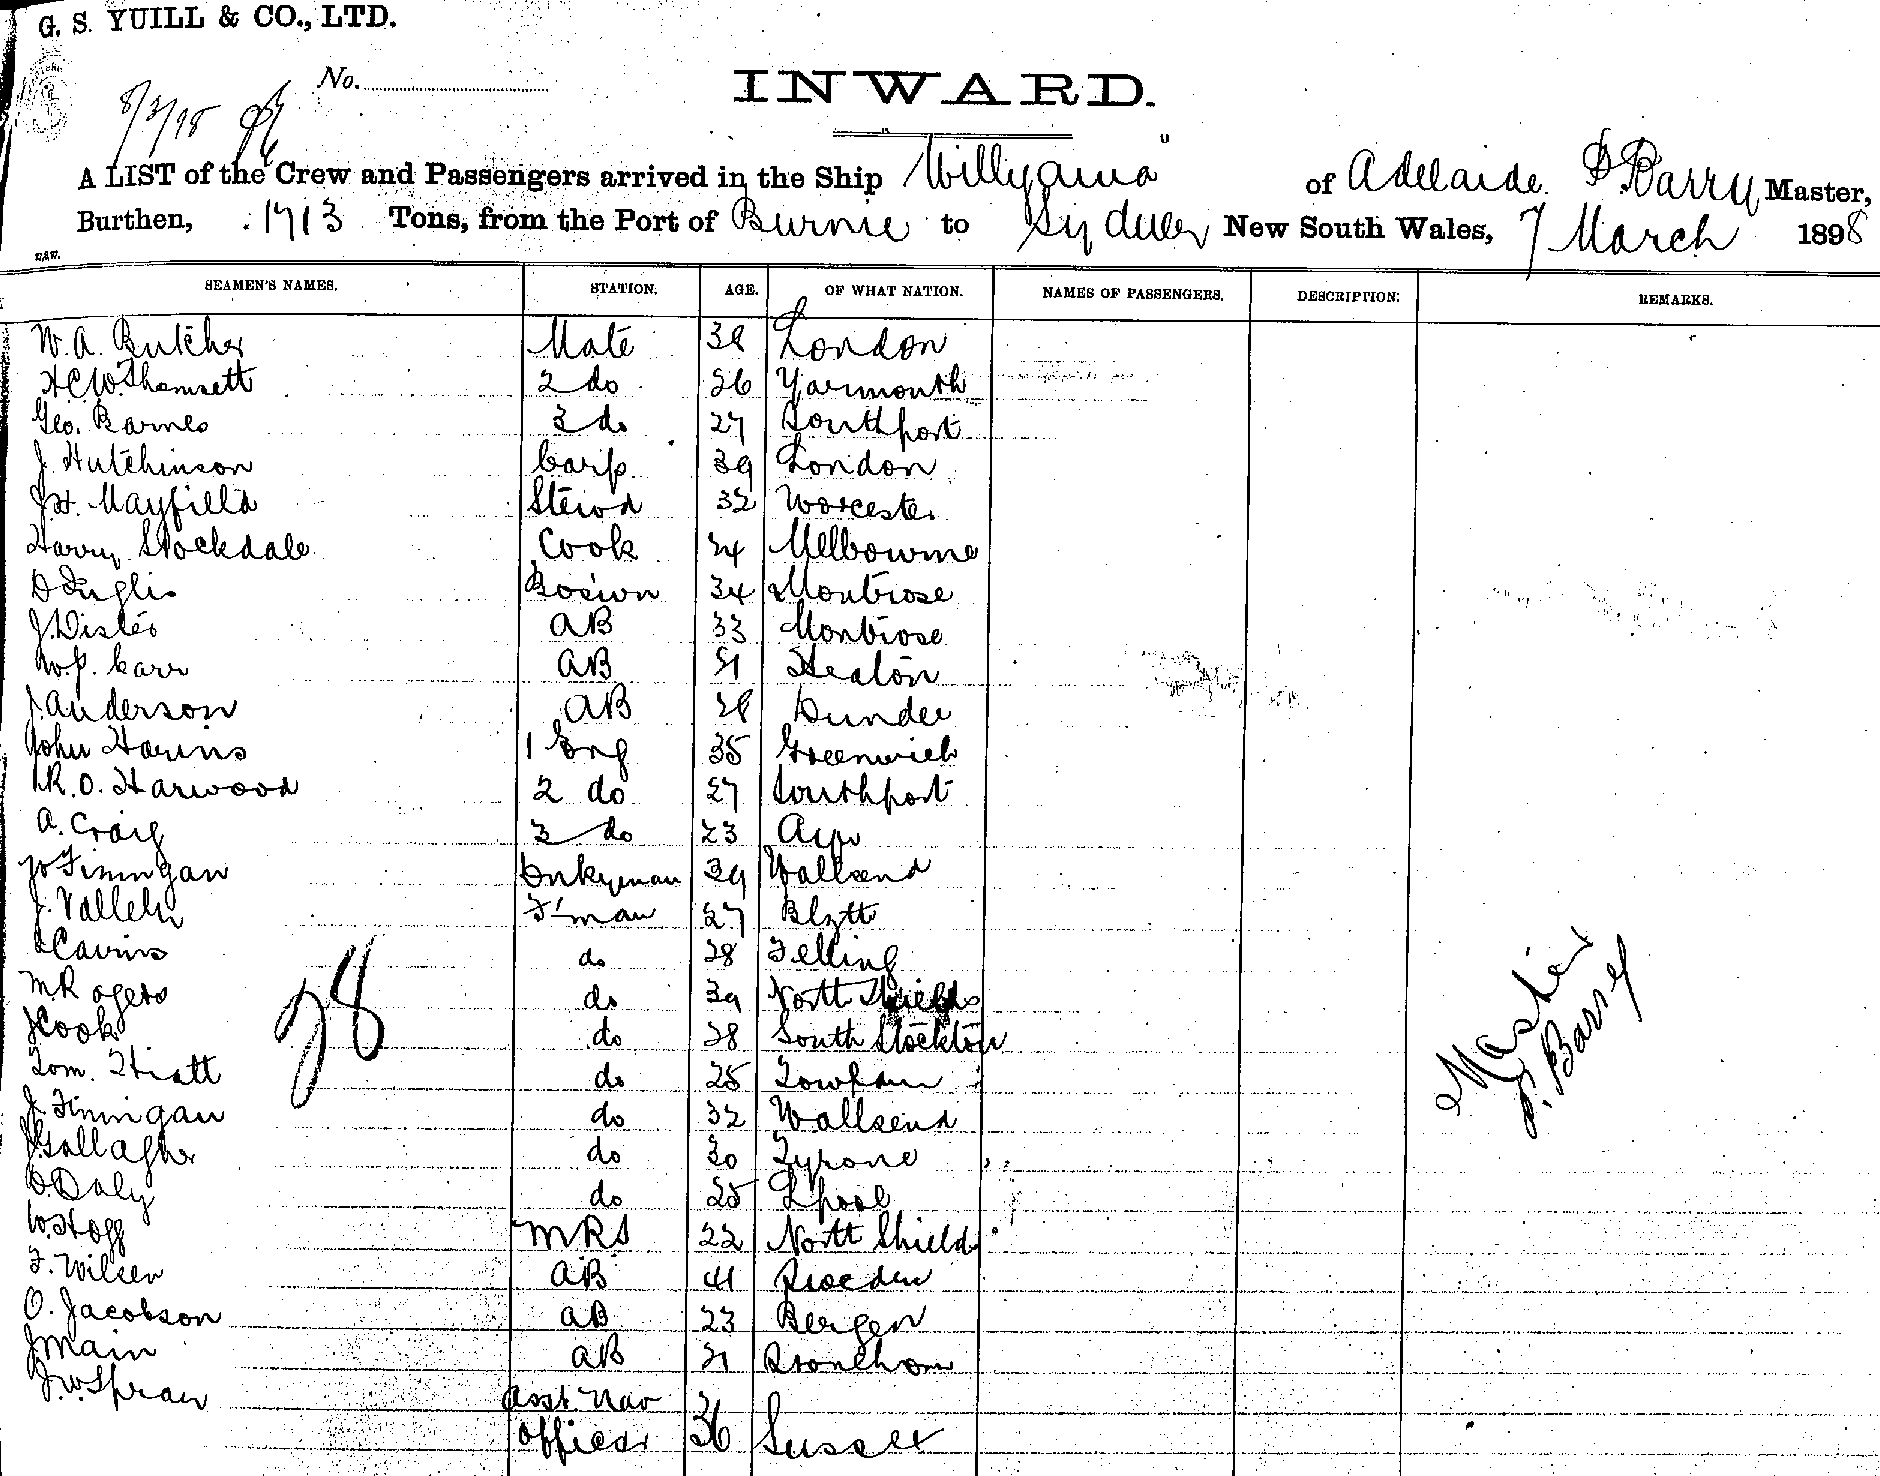 G. S. YUILL & CO., LTD.
No.
INWARD.
8/3/98
A LIST of the Crew and Passengers arrived in the Ship "Willyama" of Adelaide D. Barry Master,
Burthen, 1713 Tons, from the Port of Burnie to Sydney New South Wales, 7 March 1898
SEAMEN'S NAMES. STATION. AGE. OF WHAT NATION. NAMES OF PASSENGERS. DESCRIPTION. REMARKS.
W. A. Butcher Mate 38 London
H C W Thamsett 2 do 26 Yarmouth
Geo. Barnes 3 do 27 Southport
J. Hutchinson Carp 39 London
J. H. Mayfield Stewd 32 Worcester
Harry Stockdale Cook 24 Melbourne
D Inglis Bosun 34 Montrose
J. Dister AB 33 Montrose
W. P. Carr AB 21 Heaton
J. Anderson AB 28 Dundee
John Harris 1 Eng 35 Greenwich
R. O. Harwood 2 do 27 Southport
A. Craig 3 do 23 Ayr
Finnigan Dnkyman 39 Wallsend
J. F'man 27 Blyth
Cairns do 28 Felling
M Rogers do 39 North Shields
J Cook do 28 South Stockton
Tom. Hiatt do 25
J. Finnigan do 32 Wallsend
J Gallagher do 30 Tyrone
D. Daly do 25 Lpool
W. Hogg MRS 22 North Shields
F. Wilsen AB 41 Sweden
O. Jacobson AB 23 Bergen
J Main AB 21
J. W. Spraw Asst Nav
Officer 36 Sussex
28
Master
D. Barry